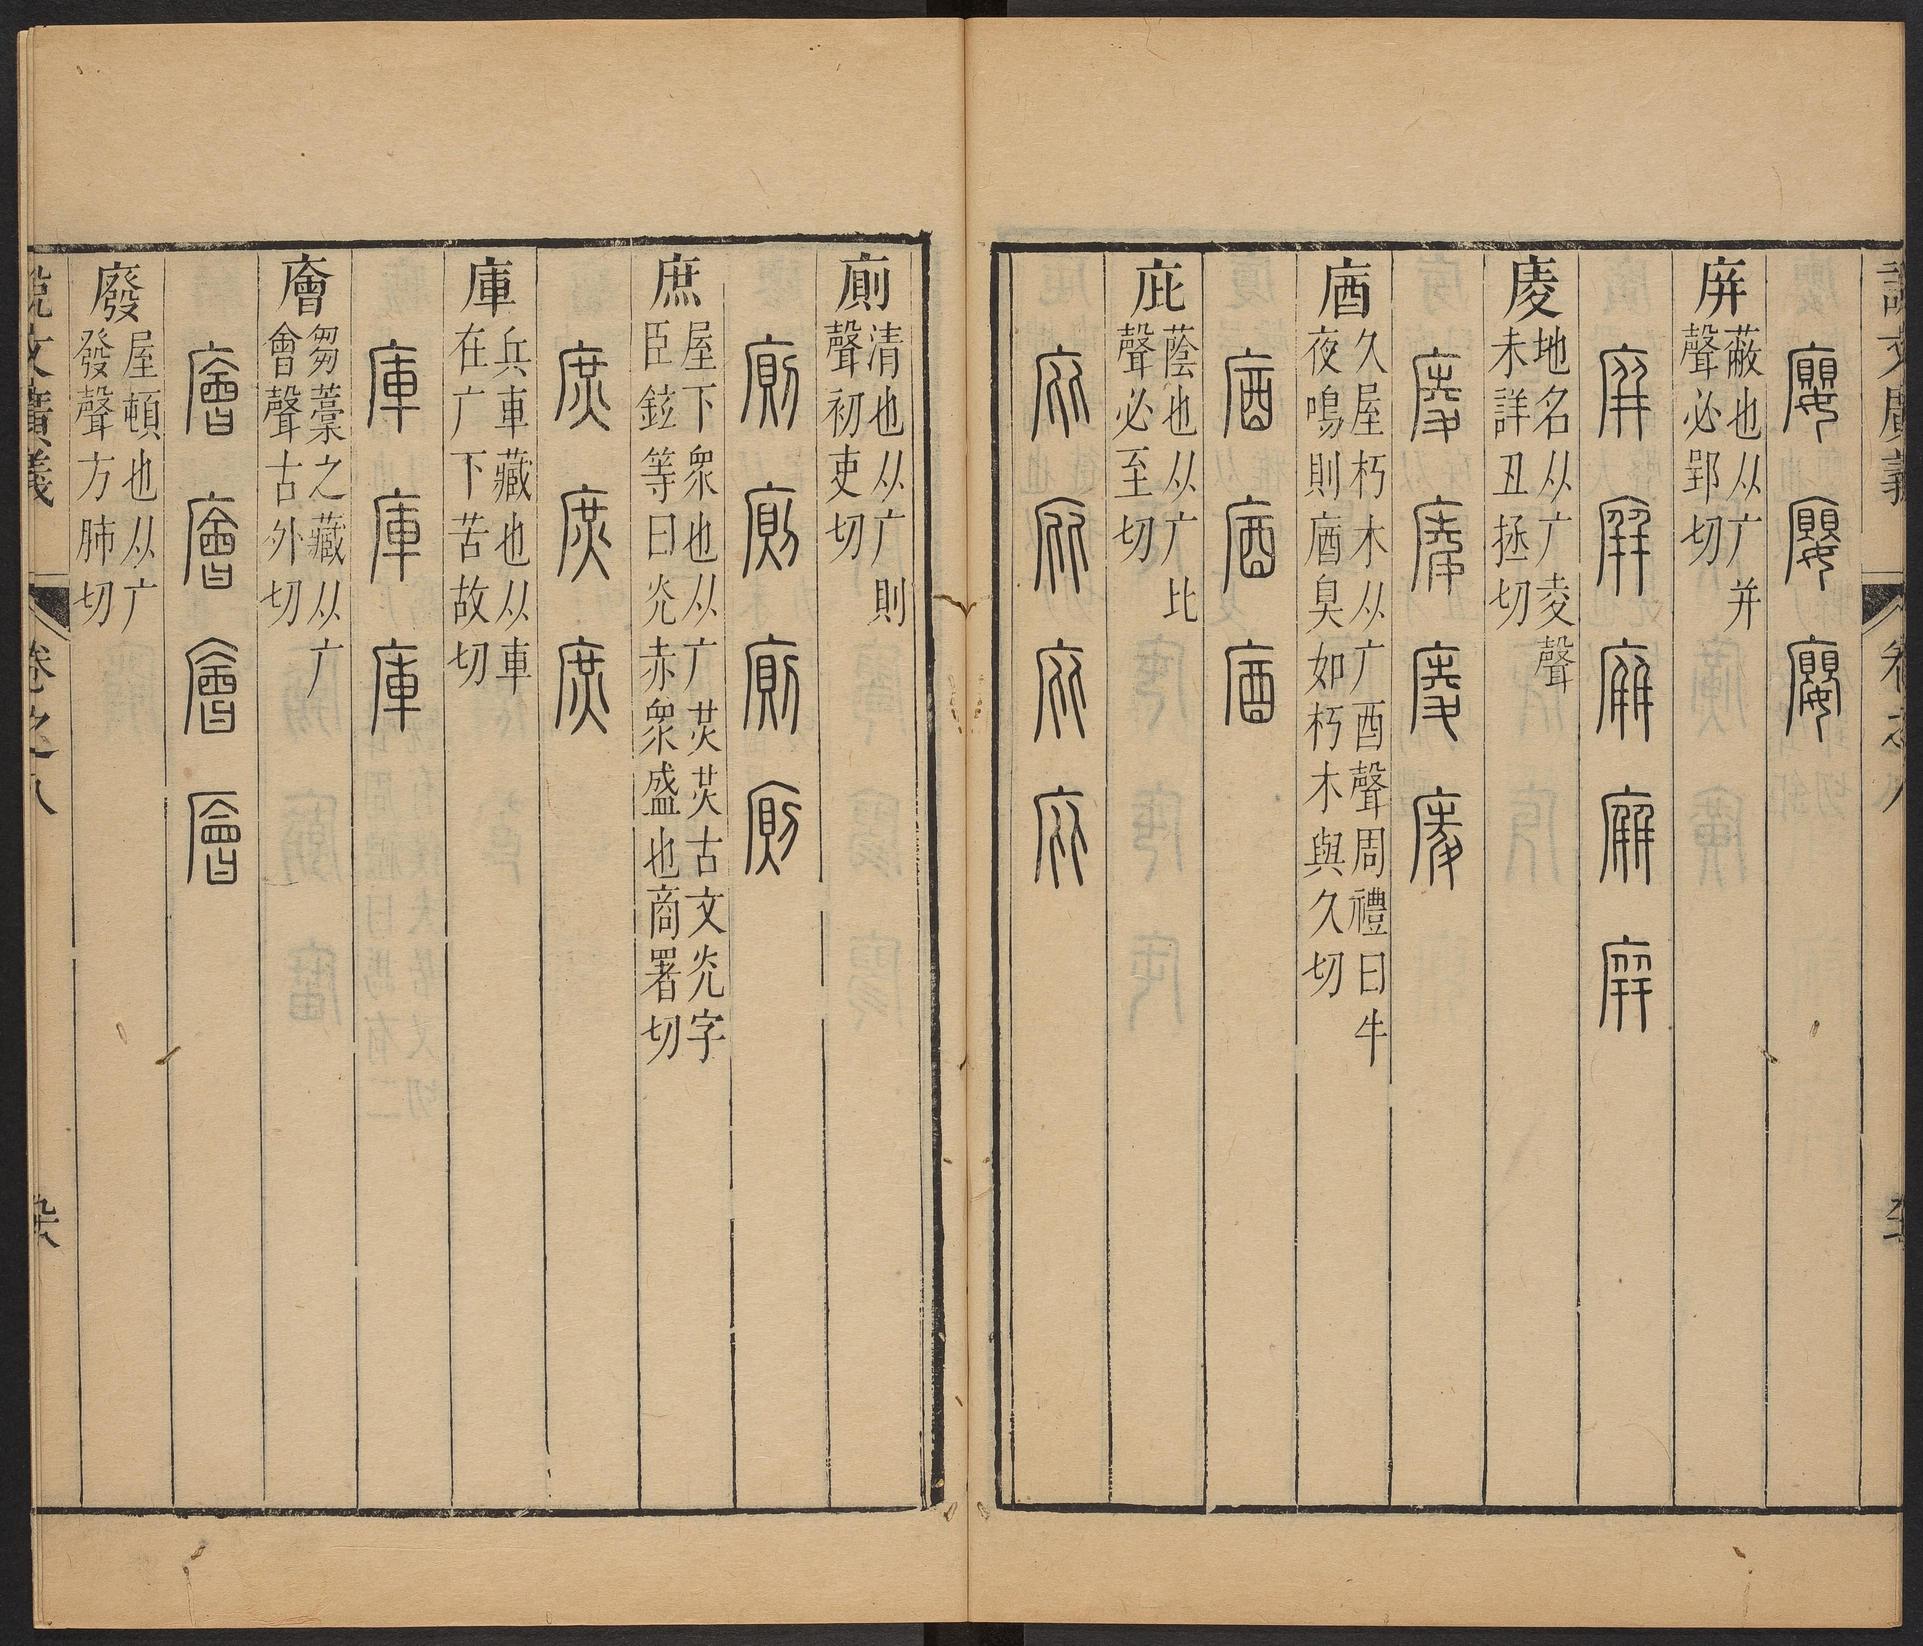 說文廣義
卷之八
廮 廮 廮
庰 蔽也从广并
聲必郢切
庰 庰 庰 庰 庰
庱 地名从广夌聲
未詳丑拯切
庱 庱 庱 庱
庮 久屋朽木从广酉聲周禮曰牛
夜鳴則庮臭如朽木與久切
庮 庮 庮
庇 蔭也从广比
聲必至切
庇 庇 庇 庇
廁 清也从广則
聲初吏切
廁 廁 廁 廁
庶 屋下眾也从广炗炗古文灮字
臣鉉等曰灮赤眾盛也商署切
庶 庶 庶
庫 兵車藏也从車
在广下苦故切
庫 庫 庫
廥 芻藁之藏从广
會聲古外切
廥 廥 廥 廥
廢 屋頓也从广
發聲方肺切
說文廣義
卷之八